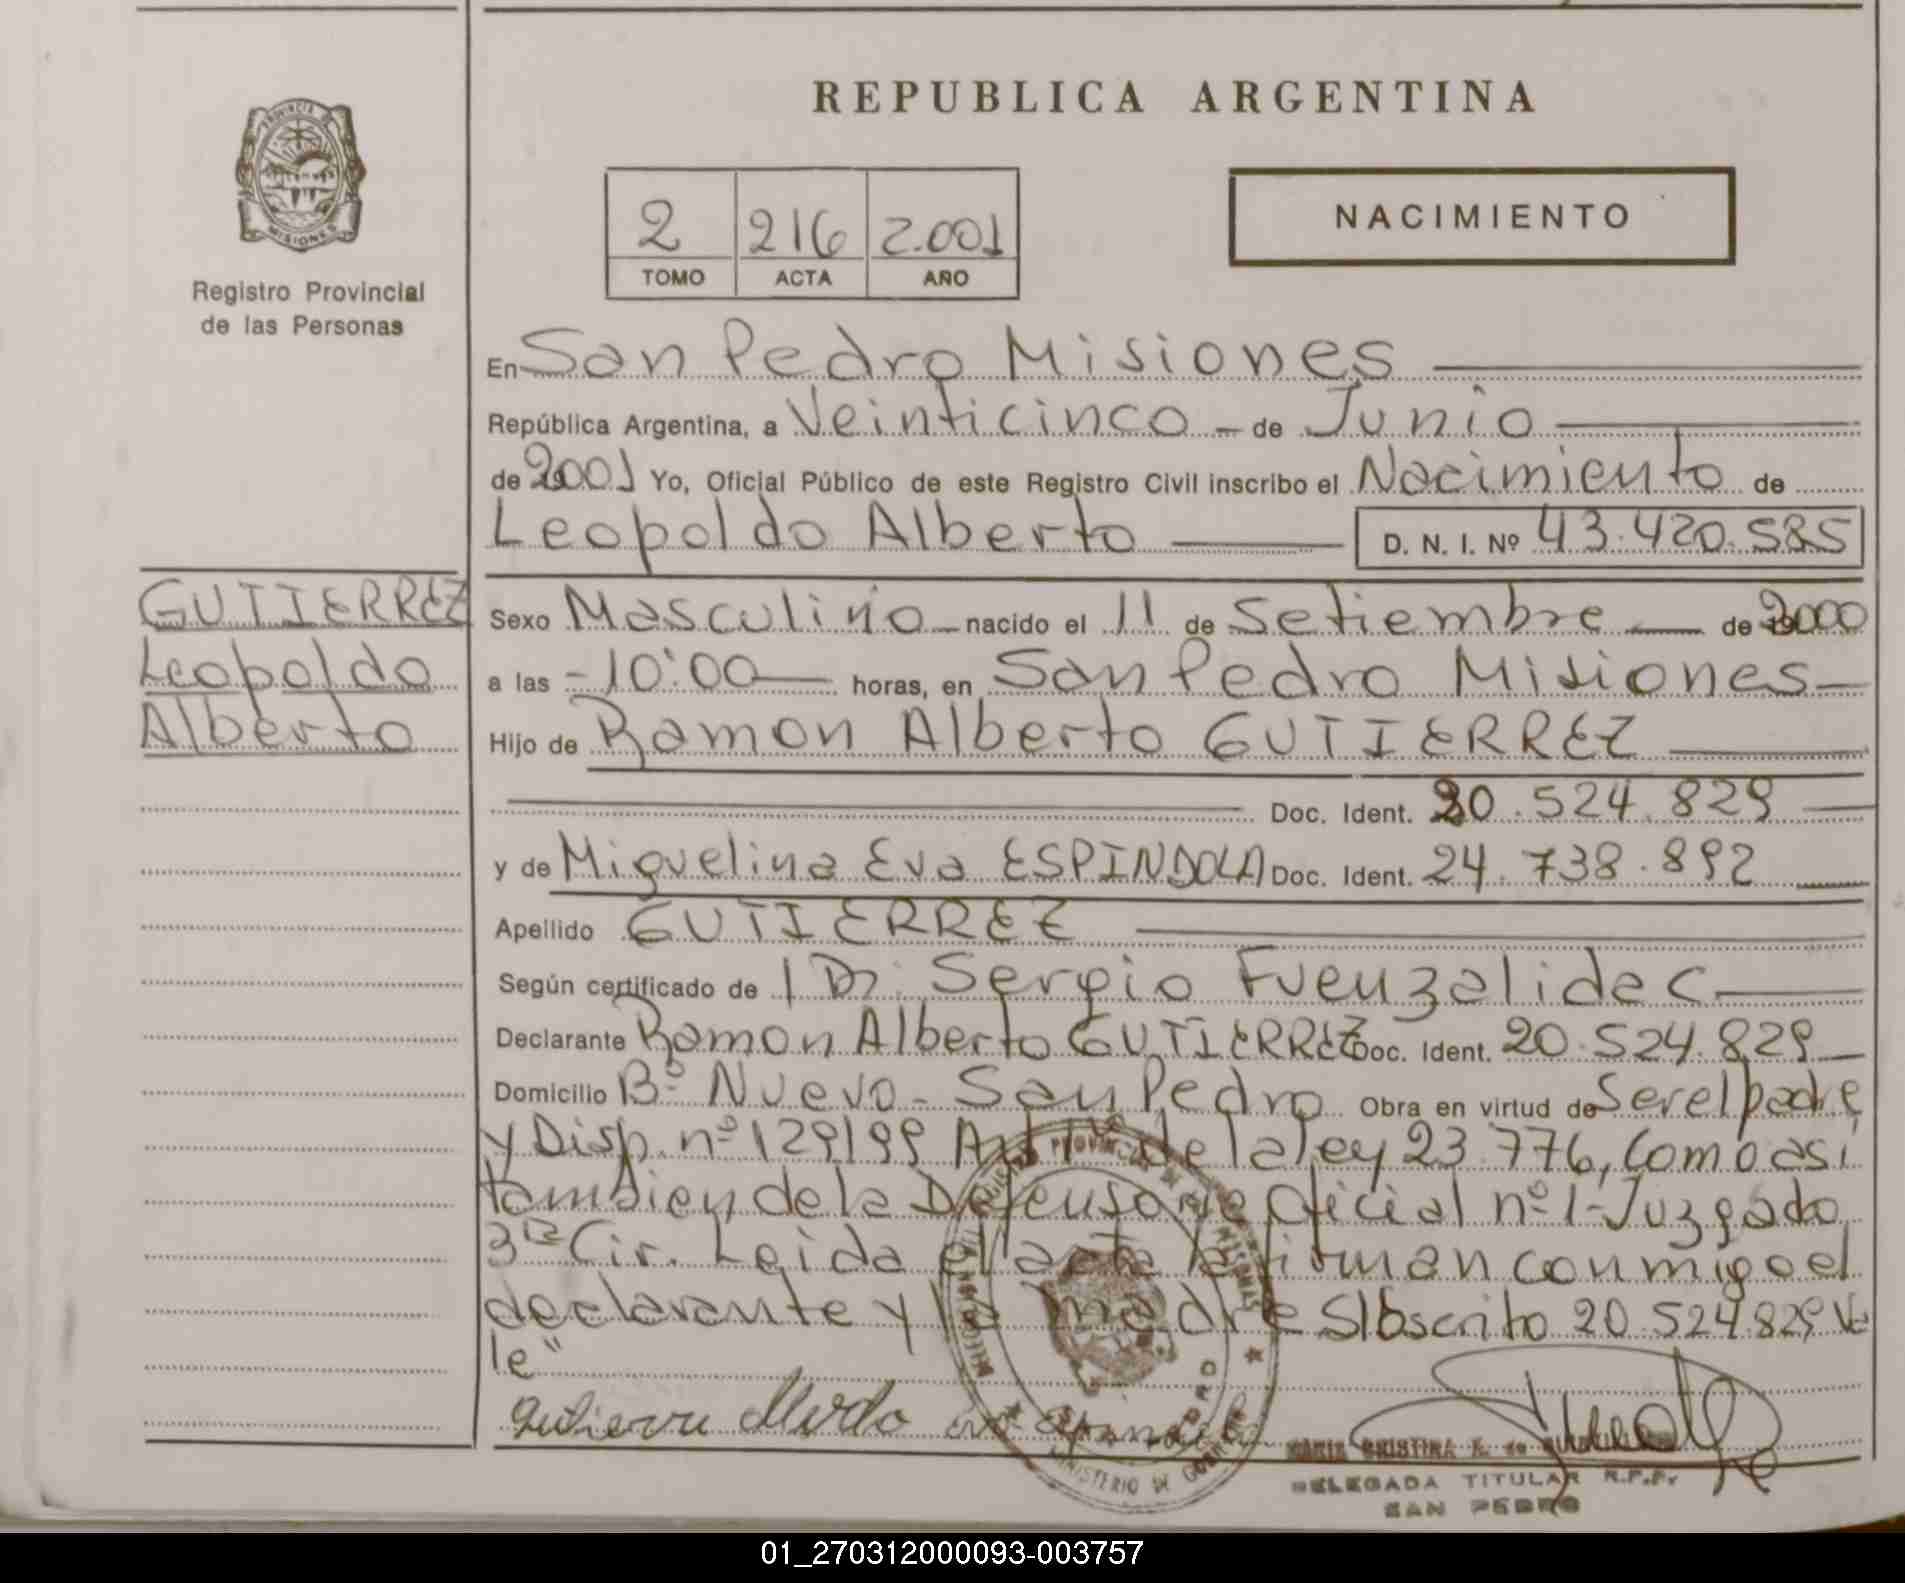 REPUBLICA ARGENTINA
PROVINCIA DE
MISIONES
Registro Provincial
de las Personas
2 216 2.001
TOMO ACTA AÑO
NACIMIENTO
En San Pedro Misiones
República Argentina, a Veinticinco de Junio
de 2001 Yo, Oficial Público de este Registro Civil inscribo el Nacimiento de
Leopoldo Alberto D. N. I. Nº 43.420.585
GUTIERREZ
Leopoldo
Alberto
Sexo Masculino nacido el 11 de Setiembre de 2000
a las 10:00 horas, en San Pedro Misiones
Hijo de Ramon Alberto GUTIERREZ
Doc. Ident. 20.524.829
y de Miguelina Eva ESPINDOLA Doc. Ident. 24.738.892
Apellido GUTIERREZ
Según certificado de Dr. Sergio Fuenzalida C
Declarante Ramon Alberto GUTIERREZ Doc. Ident. 20.524.829
Domicilio Bº Nuevo - San Pedro Obra en virtud de Ser el padre
y Disp. nº 129/99 Art 1º de la ley 23.776, como asi
tambien de la Defensoria Oficial nº 1 - Juzgado
3ra Cir. Leida el acta la firman conmigo el
declarante y la madre S/bscrito 20.524.829 Va
le"
MINISTERIO DE GOBIERNO
DELEGADA TITULAR R.P.P.
SAN PEDRO
01_270312000093-003757